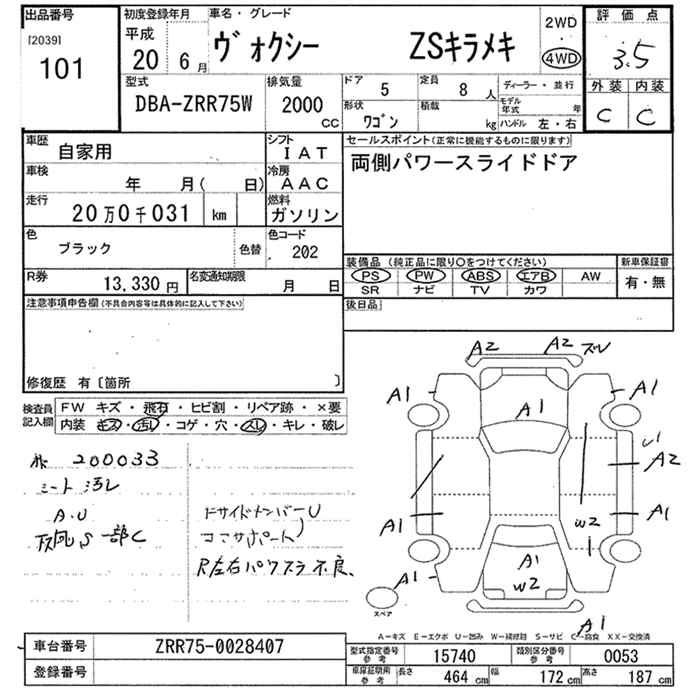 出品番号 初度登録年月 車名・グレード 2WD 評価点
[2039] 平成 ヴォクシー ZSキラメキ 4WD 3.5
101 20 6月
型式 排気量 ドア 5 定員 8人 ディーラー・並行 外装 内装
DBA-ZRR75W 2000 CC 形状 ワゴン 積載 kg モデル年式 年 C C
ハンドル 左・右
車歴 自家用 シフト IAT セールスポイント(正常に機能するものに限ります)
車検 年 月( 日) 冷房 AAC 両側パワースライドドア
走行 20万0千031 km 燃料 ガソリン
色 ブラック 色替 色コード 202
装備品 (純正品に限り○をつけてください) 新車保証書
R券 13,330円 名変通知期限 月 日 PS PW ABS エアB AW 有・無
SR ナビ TV カワ
注意事項申告欄(不具合内容等は具体的に記入して下さい) 後日品
修復歴 有〔箇所 〕
検査員記入欄 FW キズ・飛石・ヒビ割・リペア跡・×要
内装 キズ・汚レ・コゲ・穴・スレ・キレ・破レ
200033
シート汚レ
A.U
下廻りS 一部C
FサイドメンバーU
コアサポート
R左右パワスラ不良、
A2 A2 ズレ
A1 A1
A1
A2
A1 A1
W2
A1 A1 A1
W2
スペア
A1
A-キズ E-エクボ U-凹み W-補修跡 S-サビ C-腐食 XX-交換済
車台番号 ZRR75-0028407 型式指定番号 参考 15740 類別区分番号 参考 0053
登録番号 車庫証明用 参考 長さ 464 cm 幅 172 cm 高さ 187 cm